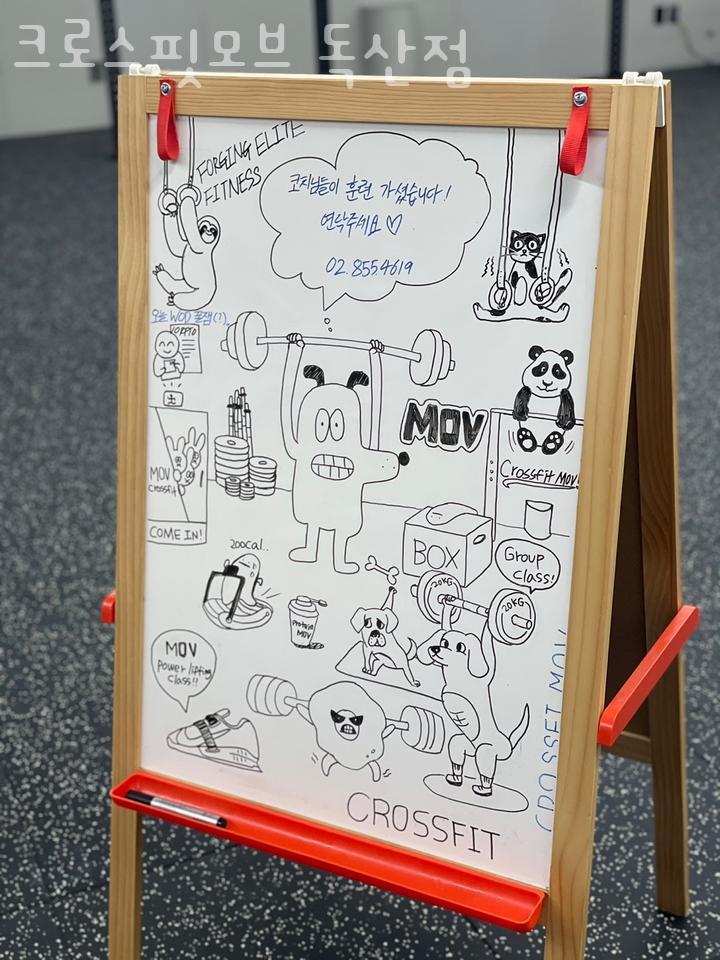 크로스핏모브 독산점
FORGING ELITE
FITNESS
코치님들이 훈련 가셨습니다!
연락주세요 ♡
02.8554619
오늘 WOD 꿀잼(?)
MOV
Crossfit MOV!
MOV
Crossfit
COME IN!
BOX
Group
Class!
200cal..
20KG
20KG
Protein
MOV
MOV
Power lifting
class!!
CROSSFIT MOV
CROSSFIT